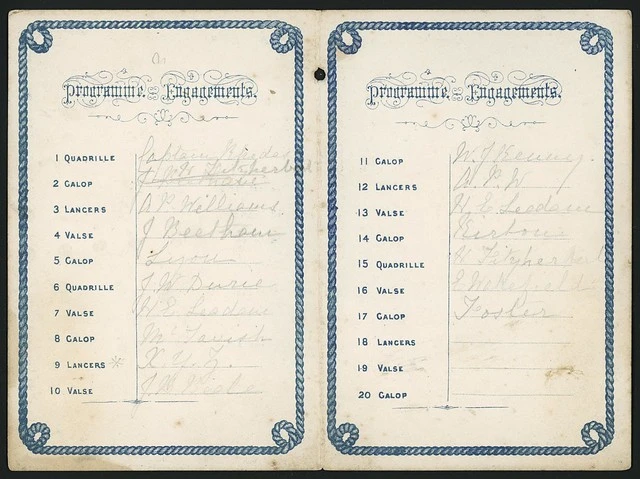 Programme. Engagements.
1 QUADRILLE Captain
2 GALOP
3 LANCERS A P Williams
4 VALSE J Beetham
5 GALOP Lyon
6 QUADRILLE J W Durie
7 VALSE W E Leedam
8 GALOP McTavish
9 LANCERS * X Y Z.
10 VALSE
Programme. Engagements.
11 GALOP W. J Kenny.
12 LANCERS A. P. W
13 VALSE H E Leedam
14 GALOP
15 QUADRILLE Fitzherbert
16 VALSE E Wakefield
17 GALOP Foster
18 LANCERS
19 VALSE
20 GALOP